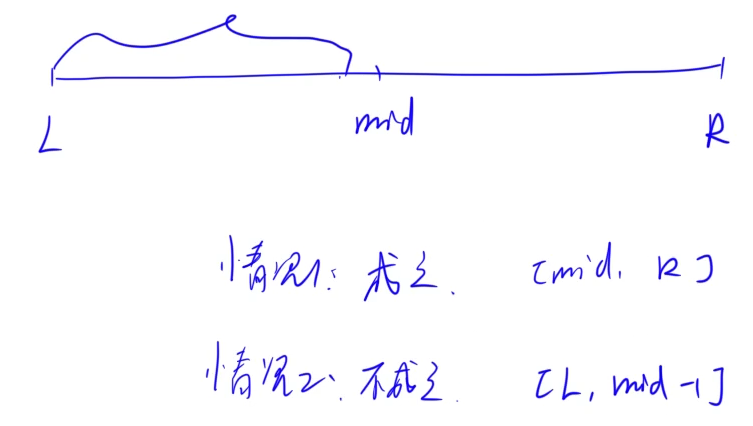 L mid R
情况1: 成立. [mid, R]
情况2: 不成立. [L, mid-1]